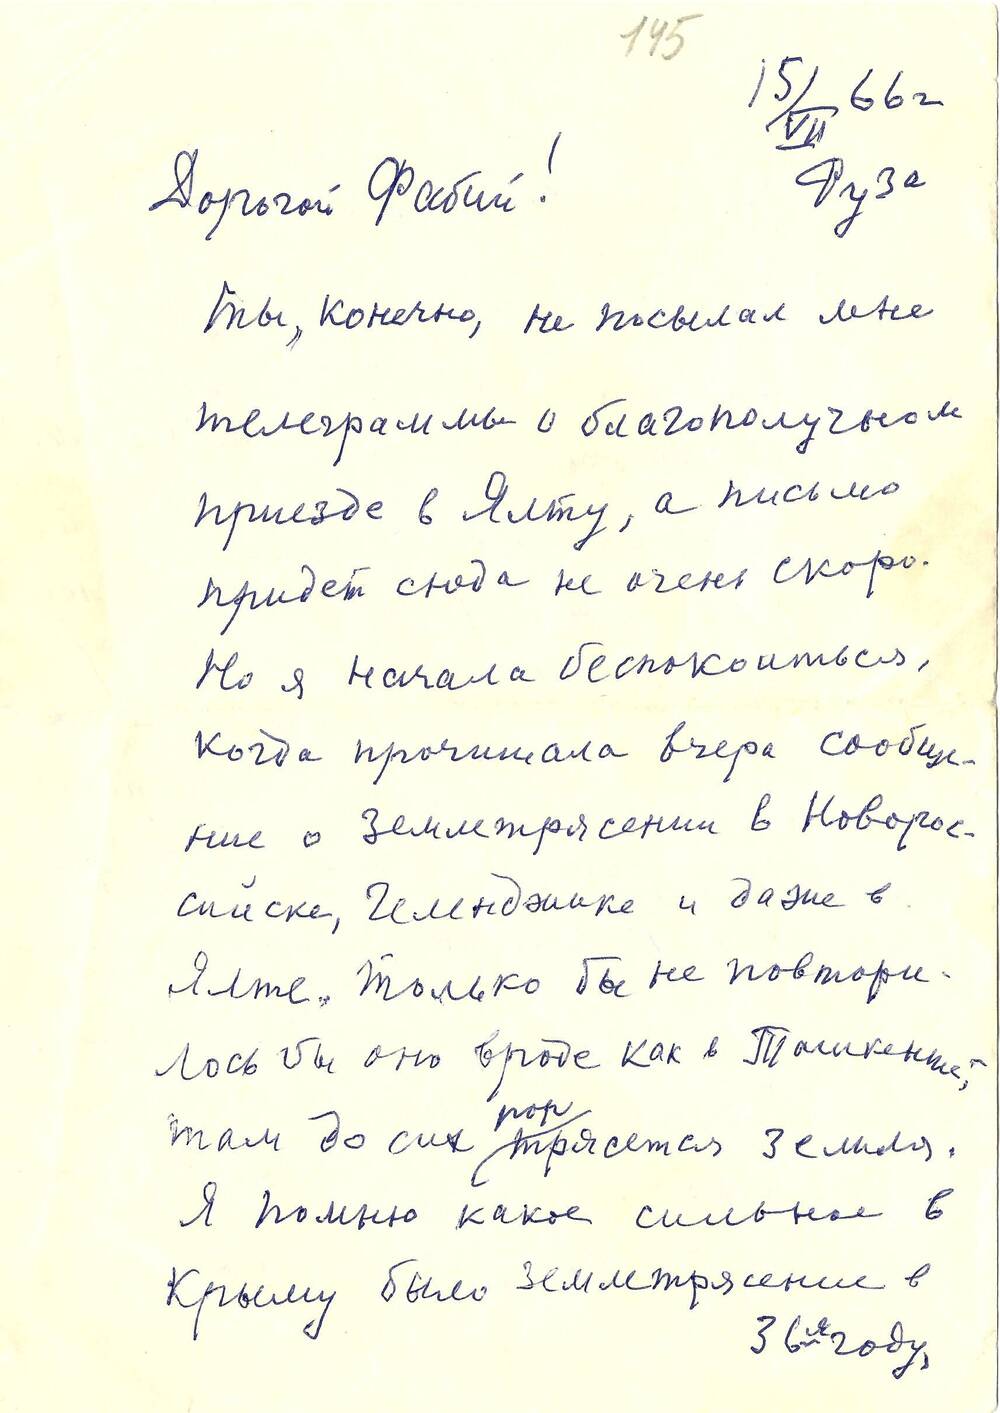 145
15/VII 66 г
Руза
Дорогой Фабий!
Ты, конечно, не посылал мне
телеграммы о благополучном
приезде в Ялту, а письмо
придет сюда не очень скоро.
Но я начала беспокоиться,
когда прочитала вчера сообще-
ние о землетрясении в Новорос-
сийске, Геленджике и даже в
Ялте. Только бы не повтори-
лось бы оно вроде как в Ташкенте,
там до сих пор трясется земля.
Я помню какое сильное в
Крыму было землетрясение в
36 году,